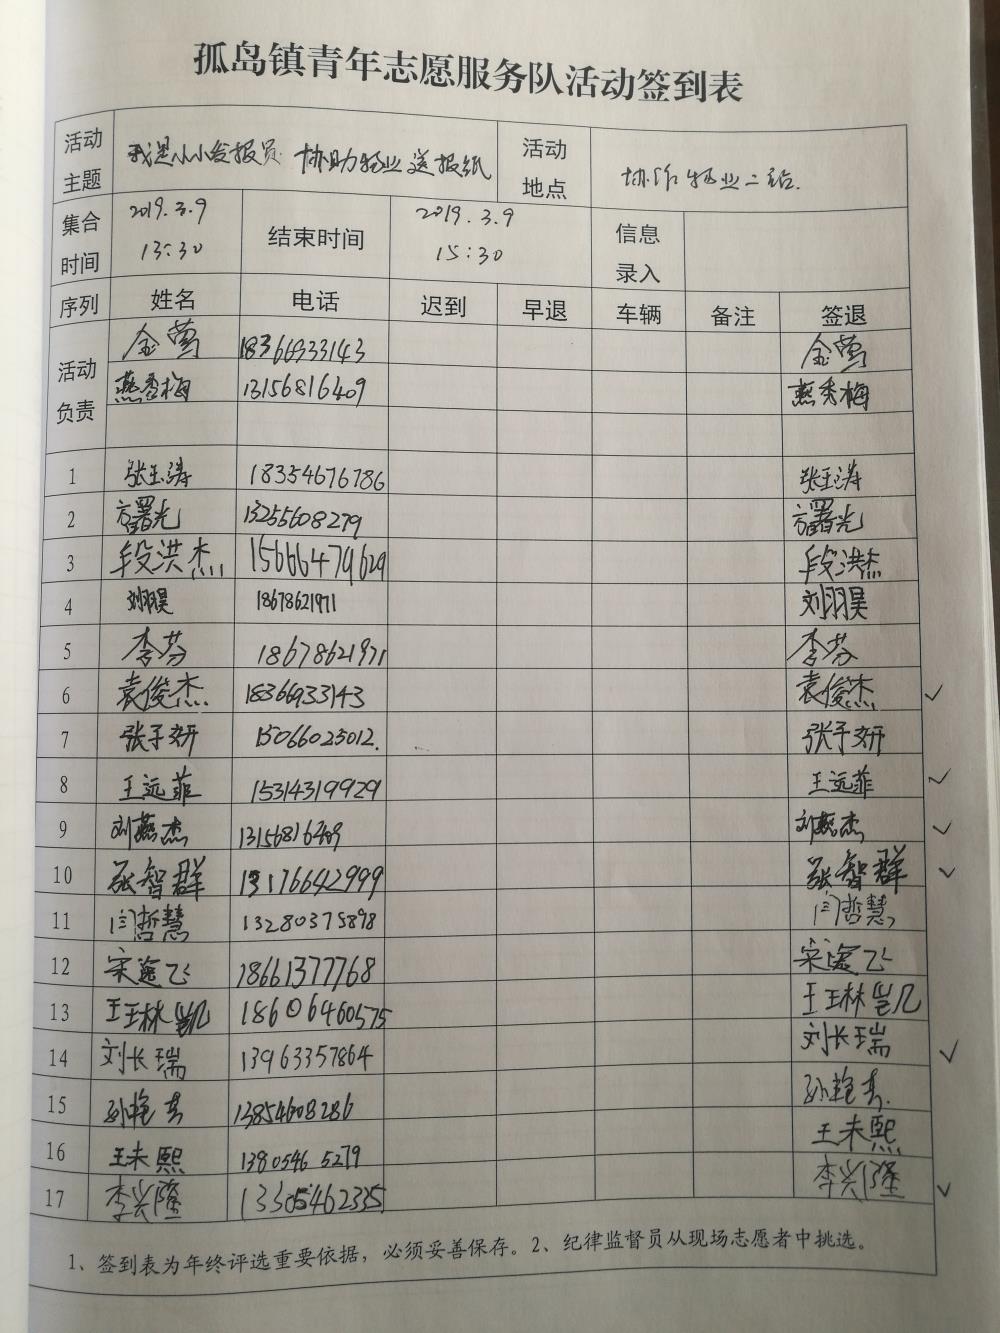 孤岛镇青年志愿服务队活动签到表
活动主题 我是小小发报员 协助物业送报纸 活动地点 协作物业二站.
集合时间 2019.3.9 13:30 结束时间 2019.3.9 15:30 信息录入
序列 姓名 电话 迟到 早退 车辆 备注 签退
活动负责 金莺 18366933143 金莺
燕秀梅 13156816409 燕秀梅
1 张玉涛 18354676786 张玉涛
2 方曙光 13255608279 方曙光
3 段洪杰 15666479629 段洪杰
4 刘羽昊 18678621971 刘羽昊
5 李芬 18678621971 李芬
6 袁俊杰 18366933143 袁俊杰 ✓
7 张予妍 15066025012. 张予妍
8 王远菲 15314319929 王远菲 ✓
9 刘燕杰 13156816409 刘燕杰 ✓
10 张智群 13176642999 张智群 ✓
11 闫哲慧 13280375898 闫哲慧
12 宋逾飞 18661377768 宋逾飞
13 王王林凯 18606460575 王王林凯
14 刘长瑞 13963357864 刘长瑞 ✓
15 孙艳春 13854608286 孙艳春.
16 王未熙 13805465279 王未熙
17 李兴隆 13305462335 李兴隆 ✓
1、签到表为年终评选重要依据，必须妥善保存。2、纪律监督员从现场志愿者中挑选。